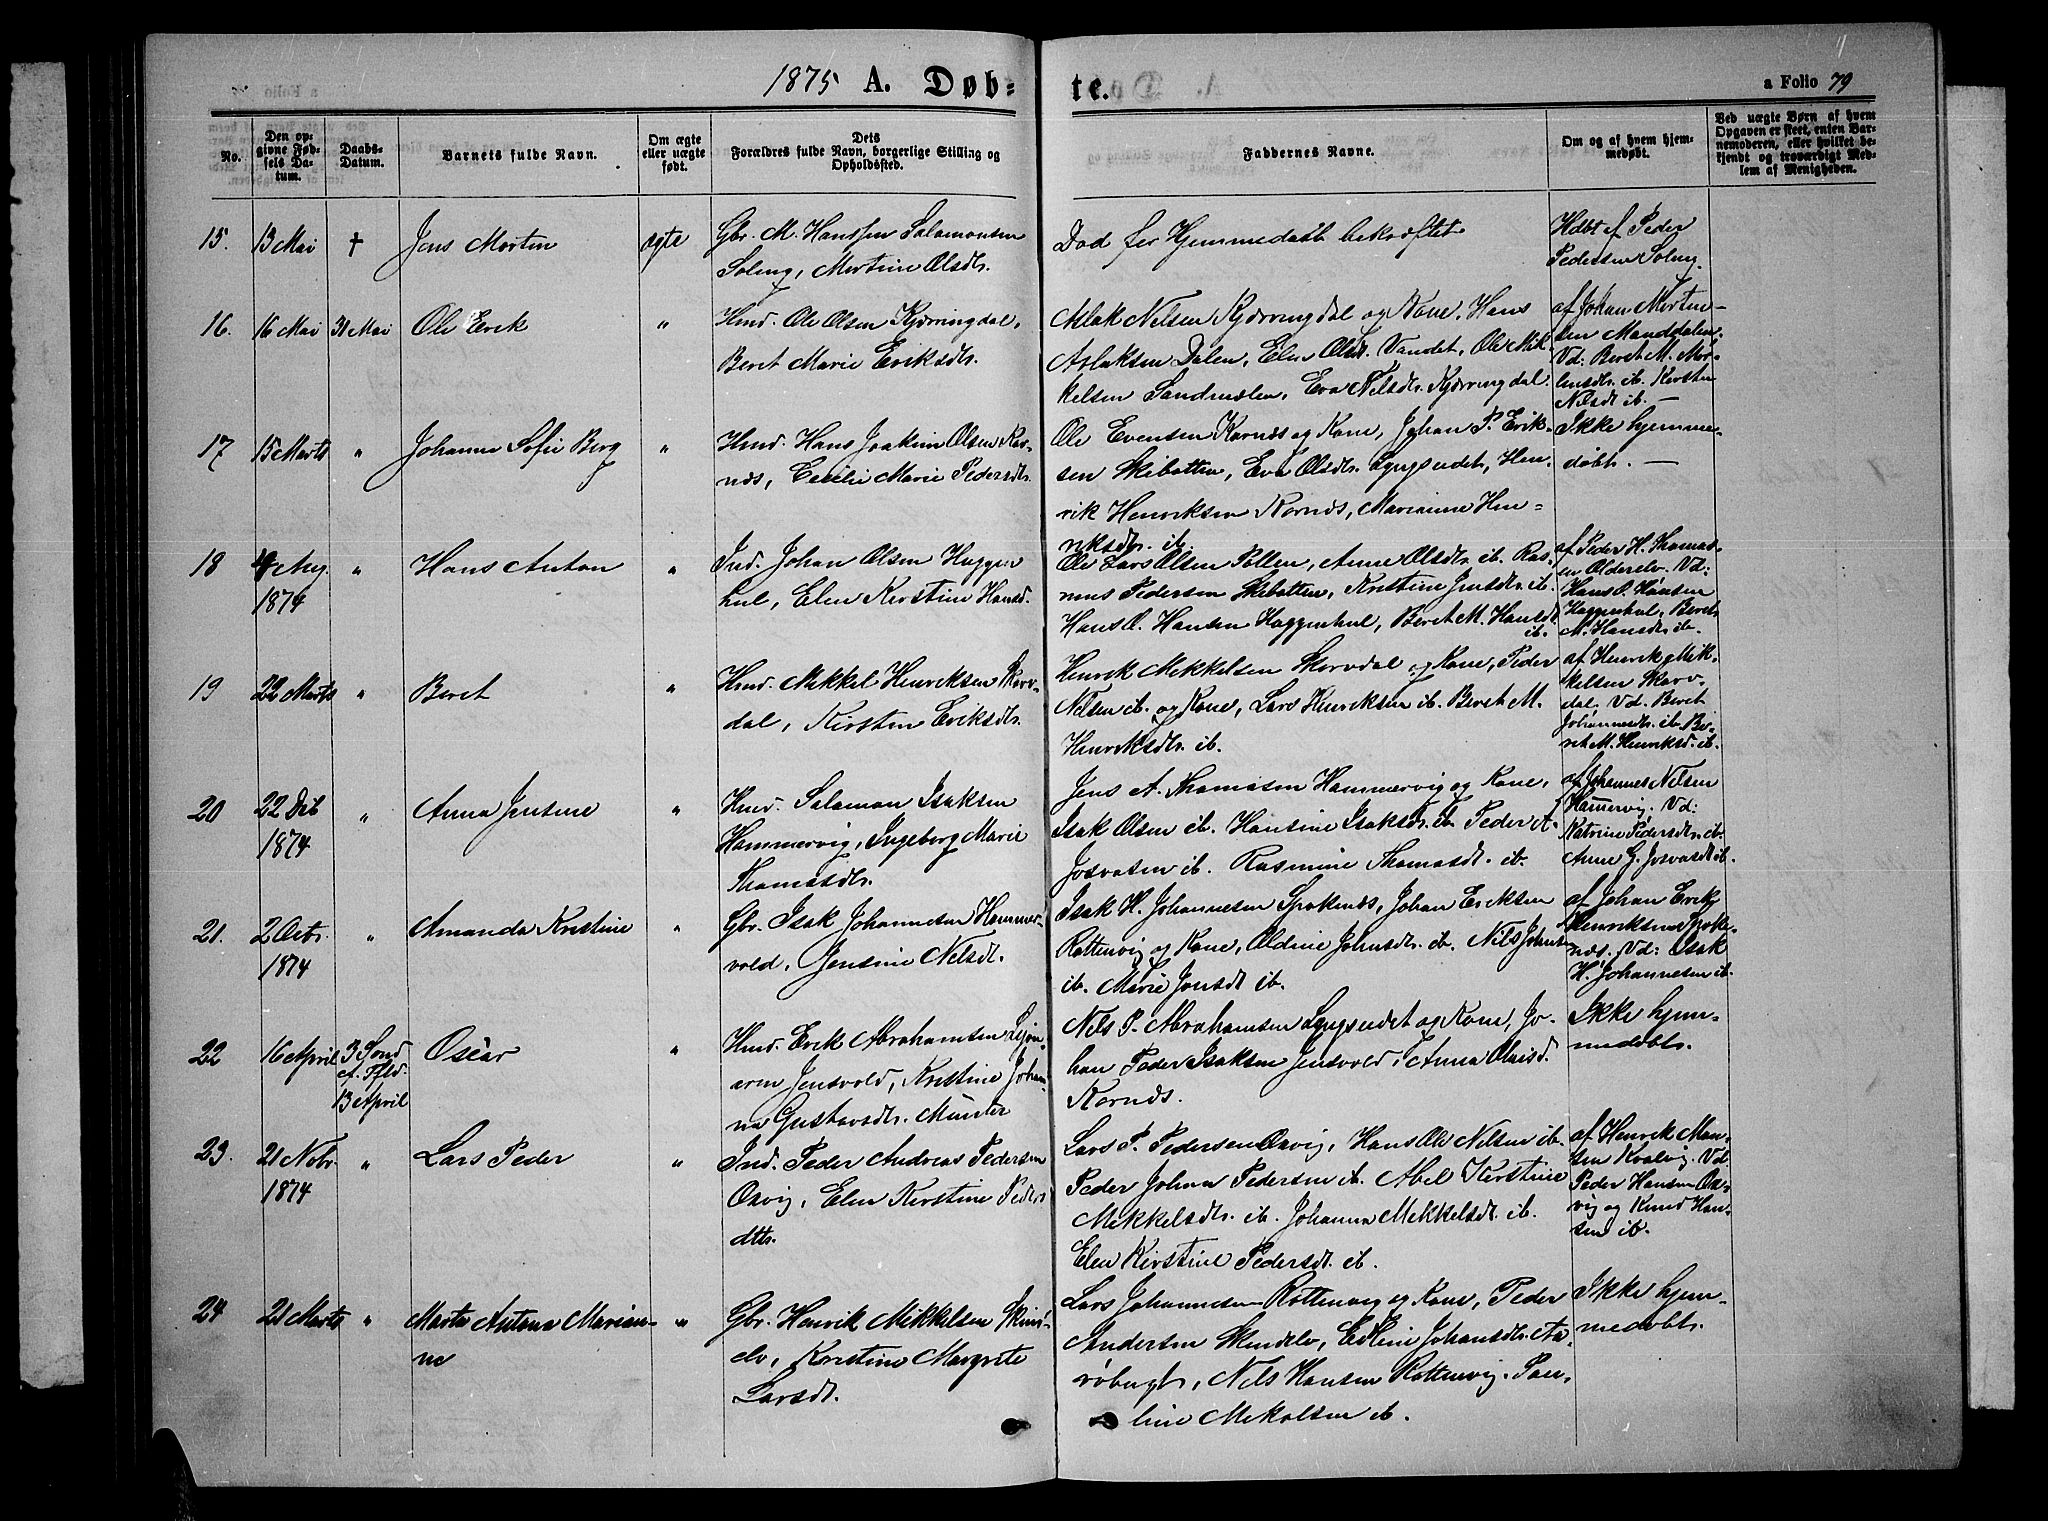 1875 A. Døb=
te.
a Folio 79
No.
Den op=
givne Fød=
sels Da=
tum.
Daabs=
Datum.
Barnets fulde Navn.
Om ægte
eller uægte
født.
Dets
Forældres fulde Navn, borgerlige Stilling og
Opholdssted.
Faddernes Navne.
Om og af hvem hjem=
medøbt.
Ved uægte Børn af hvem
Opgaven er skeet, enten Bar=
nemoderen, eller hvilket be=
kjendt og troværdigt Med=
lem af Menigheden.
15.
13 Mai
†
Jens Morten
ægte
Gbr. M. Hanssen Salamonsen
Soleng, Martine Olsdtr.
Død før Hjemmedaab bekræftet
Hdbt af Peder
Pedersen Soleng.
16.
16 Mai
31 Mai
Ole Erik
"
Hmd. Ole Olsen Kjærringdal,
Beret Marie Eriksdtr.
Aslak Nelsen Kjærringdal og Kone, Hans
Aslaksen Dalen, Elen Olsdtr. Vandet, Ole Mik
kelsen Sandnæslen, Eva Nelsdtr. Kjærringdal.
af Johan Morten=
sen Manddalen,
Vd: Beret M. Mor=
tensdtr. ib. Kirsten
Nelsdt ib. —
17
15 Marts
"
Johanna Sofie Berg
"
Hmd. Hans Joakim Olsen Kar=
næs, Cecilie Marie Pedersdtr.
Ole Evensen Karnæs og Kone, Johan P. Erik=
sen Skibotten, Eva Olsdtr. Lyngseidet, Hen=
rik Henriksen Kornæs, Marianne Hen=
riksdtr. ib.
Ikke hjemme=
døbt. —
18
4 Aug.
1874
"
Hans Anton
"
Ind. Johan Olsen Haggen
hul, Elen Kirstine Hansd.
Ole Lars Olsen Pollen, Anne Olsdtr. ib. Ras=
mus Pedersen Skibotten, Kristine Jensdtr. ib.
Hans O. Hansen Haggenhul, Beret M. Hansdt
ib.
af Peder H. Thomas=
sen Olderelv. Vd:
Hans O. Hansen
Haggenhul, Beret
M. Hansdtr. ib.
19
22 Marts
"
Beret
"
Hmd. Mikkel Henriksen Skorv=
dal, Kirsten Eriksdtr.
Henrik Mikkelsen Skorvdal og Kone, Peder
Nelsen ib. og Kone, Lars Henriksen ib. Beret M.
Henriksdtr. ib.
af Henrik Mik=
kelsen Skorv=
dal. Vd. Beret
Johannesdtr. ib. Be=
ret M. Henriksd. ib.
20
22 Deb
1874
"
Anna Jensine
"
Hmd. Salamon Isaksen
Hammervig, Ingeborg Marie
Thomasdtr.
Jens A. Thomasen Hammervig og Kone,
Isak Olsen ib. Hansine Isaksdtr. ib. Peder A
Josvasen ib. Rasmine Thomasdt. ib.
af Johannes Nilsen
Hammervig. Vd:
Katrine Pedersdtr. ib.
Anne G. Josvasdt ib.
21.
2 Octr.
1874
"
Amanda Kristine
"
Gbr. Isak Johannesen Hammer=
vold, Jensine Nelsdt.
Isak H. Johannesen Spokenæs, Johan Eriksen
Rottenvig og Kone, Oldine Johnsdtr. ib. Nils Johnsen
ib. Marie Jonsdt ib.
af Johan Erik
Henriksen Spoke=
næs. Vd: Isak
H. Johannesen ib.
22
16 April
3 Sond
A. Tfld.
13 April
Oscar
"
Hmd. Erik Abrahamsen Lejon=
arm Jensvold, Kristine Johan=
na Gustavsdtr. Münter
Nils P. Abrahamsen Lyngseidet og Kone, Jo=
han Peder Isaksen Jensvold, Anna Olaisd.
Kornæs.
Ikke hjem=
medøbt.
23.
21 Nobr.
1874
"
Lars Peder
"
Ind. Peder Andreas Pedersen
Oxvig, Elen Kirstine Peders
dttr.
Lars P. Pedersen Oxvig, Hans Ole Nelsen ib.
Peder Johan Pedersen ib. Abel Kirstine
Mikkelsdtr. ib. Johanna Mekkelsdt. ib.
Elen Kirstine Pedersdt. ib.
af Henrik Han=
sen Kvalvig. Vd
Peder Hansen Ox=
vig og Knud Han=
sen ib.
24
21 Marts
"
Marta Antona Marian=
ne
"
Gbr. Henrik Mikkelsen Skind=
elv, Kirstine Margrete
Larsdt.
Lars Johannesen Rottenvig og Kone, Peder
Andersen Skindelv, Edline Johansdtr. Aa=
røbugt, Nils Hansen Rottenvig. Pau=
line Mikalsen ib.
Ikke hjem=
medøbt.